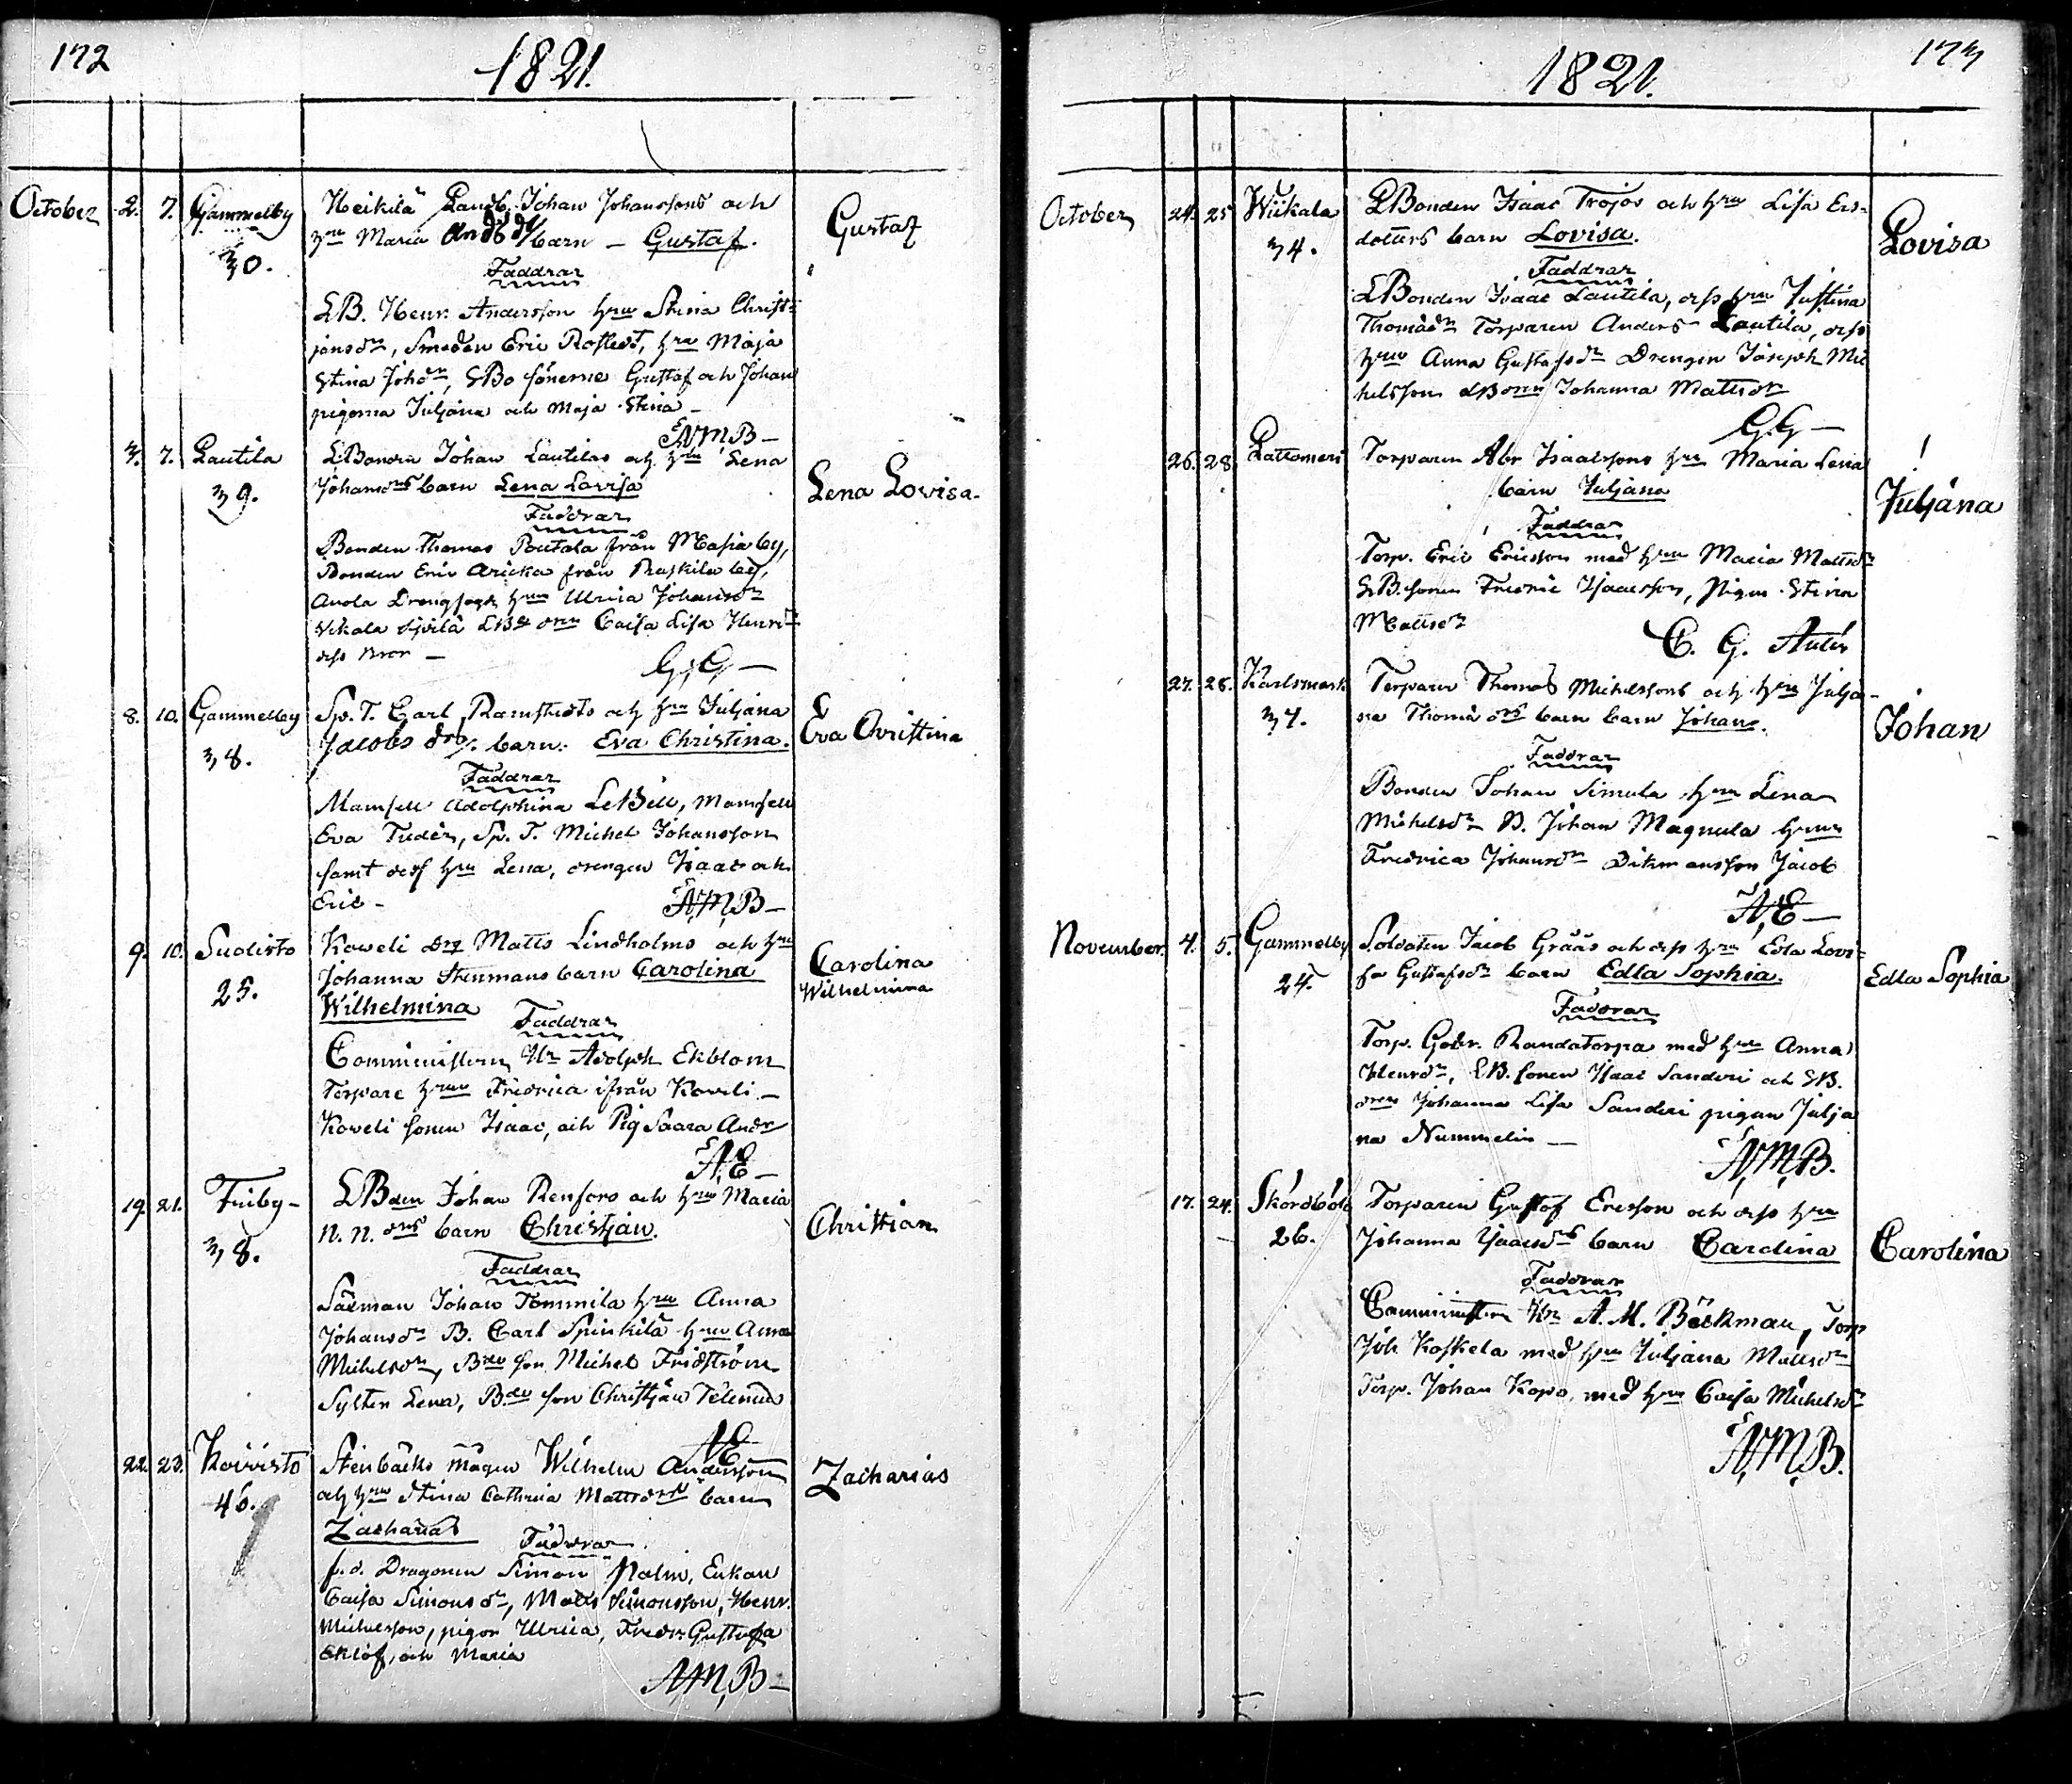 172
1821.
October 2. 7. Gammelby Heikilä Landb. Johan Johanssons och Gustaf
30. hru Maria And. dr barn — Gustaf.
Faddrar
LB. Henr. Andersson hru Stina Christ-
jansdr, Smeden Eric Rostedt, hru Maja
Stina Johdr, LBo sönerne Gustaf och Johan
pigorna Juljana och Maja Stina —
A,M,B —
3. 7. Lautila LBonden Johan Lautilas och hru Lena Lena Lovisa.
39. Johansdrs barn Lena Lovisa
Faddrar
Bonden Thomas Poutala från Masia by,
Bonden Eric Aricka från Raskila by,
Anola Dreng hru Ulrica Johansdr
LBo Caisa Lisa Henr.dr
dess Bror —
G,G —
8. 10. Gammelby Sv. T. Carl Ramstedts och hru Juljana Eva Christina
38. Jacobs dr. barn. Eva Christina.
Faddrar
Mamsell Adolphina LeBell, Mamsell
Eva Tudér, Sv. T. Michel Johansson
samt dess hru Lena, drengen Isaac och
Eric —
A,M,B —
9. 10. Suolisto Koveli drg Matts Lindholms och hru Carolina
25. Johanna Stenmans barn Carolina Wilhelmina
Wilhelmina Faddrar
Comministern Hr Adolph Ekblom
Torpare hrun Fredrica ifrån Koveli —
Koveli sonen Isaac, och Pig Saara Andr
A,E —
19. 21. Friby — LBden Johan Rensors och hru Maria Christian
38. N. N. drs barn Christjan.
Faddrar
Johan Tommila hru Anna
Johansdr B. Carl Spinkilä hru Anna
Michelsdr, Bde son Michel Fridström
Lena, Bde son Christjan
A,E
22. 23. Koivisto Stenbäcks mågen Wilhelm Andersson Zacharias
46. och hru Stina Cathrina Mattsdrs barn
Zacharias Faddrar
f. d. Dragonen Simon Malm, Enkan
Caisa Simonsdr, Matts Simonsson, Henr.
Michelsson, pigor Ulrica, Fredr. Gustafa
Eklöf, och Maria
A,M,B —
1821.
173
October 24. 25. Wiikala LBonden Isaac Trojos och hru Lisa Ers- Lovisa
34. dotters barn Lovisa.
Faddrar
LBonden Isaac Lautila, dess hru Justina
Thomasdr Torparen Anders Lautila, dess
hru Anna Gustafsdr Drengen Joseph Mic
helsson LBdrn Johanna Mattsdr
G.G —
26. 28. Lattomeri Torparen Abr Isaacssons hru Maria Lena ! Juljána
barn Juljana
Faddrar
Torp. Eric Ericsson med hru Maria Mattsdr
LB. sonen Fredric Isaacsson, Pigan Stina
Mattsdr
C. G. Autén
27. 28. Karlsmark Torparen Thomas Michelssons och hru Julja- Johan
34. na Thomæ drs barn barn Johan.
Faddrar
Bonden Johan Simula hru Lena
Michelsdr B. Johan Magnula hru
Fredrica Johansdr Jacob
A,E —
November. 4. 5. Gammelby Soldaten Jacob Grääs och dess hru Edla Lovi- Edla Sophia
24. sa Gustafsdr barn Edla Sophia.
Faddrar
Torp. Gabr. Randatorpa med hru Anna
Henrdr, LB. sonen Isaac Sanderi och LB.
dren Johanna Lisa Sanderi pigan Julja
na Nummelin —
A,M,B.
17. 24. Skördböle Torparen Gustaf Ericsson och dess hru Carolina
26. Johanna Isaacsdrs barn Carolina
Faddrar
Comministern Hr A. M. Bäckman, Torp
Joh Koskela med hru Juljana Mattsdr
Torp. Johan Kopo, med hru Caisa Michelsdr
A,M,B.